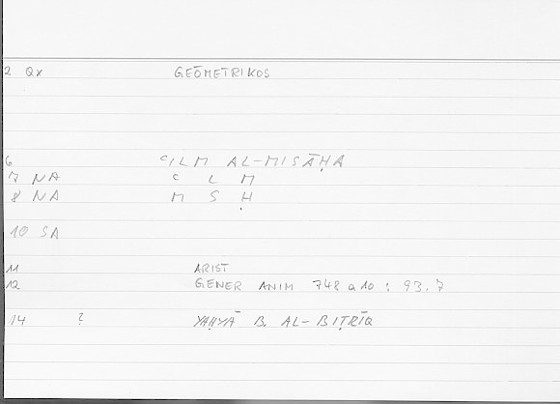 2 Qx GEŌMETRIKOS
6 ʿILM AL-MISĀḤA
7 NA ʿ L M
8 NA M S Ḥ
10 SA
11 ARIST
12 GENER ANIM 748 a 10 : 93.7
14 ? YAḤYĀ B. AL-BIṬRĪQ